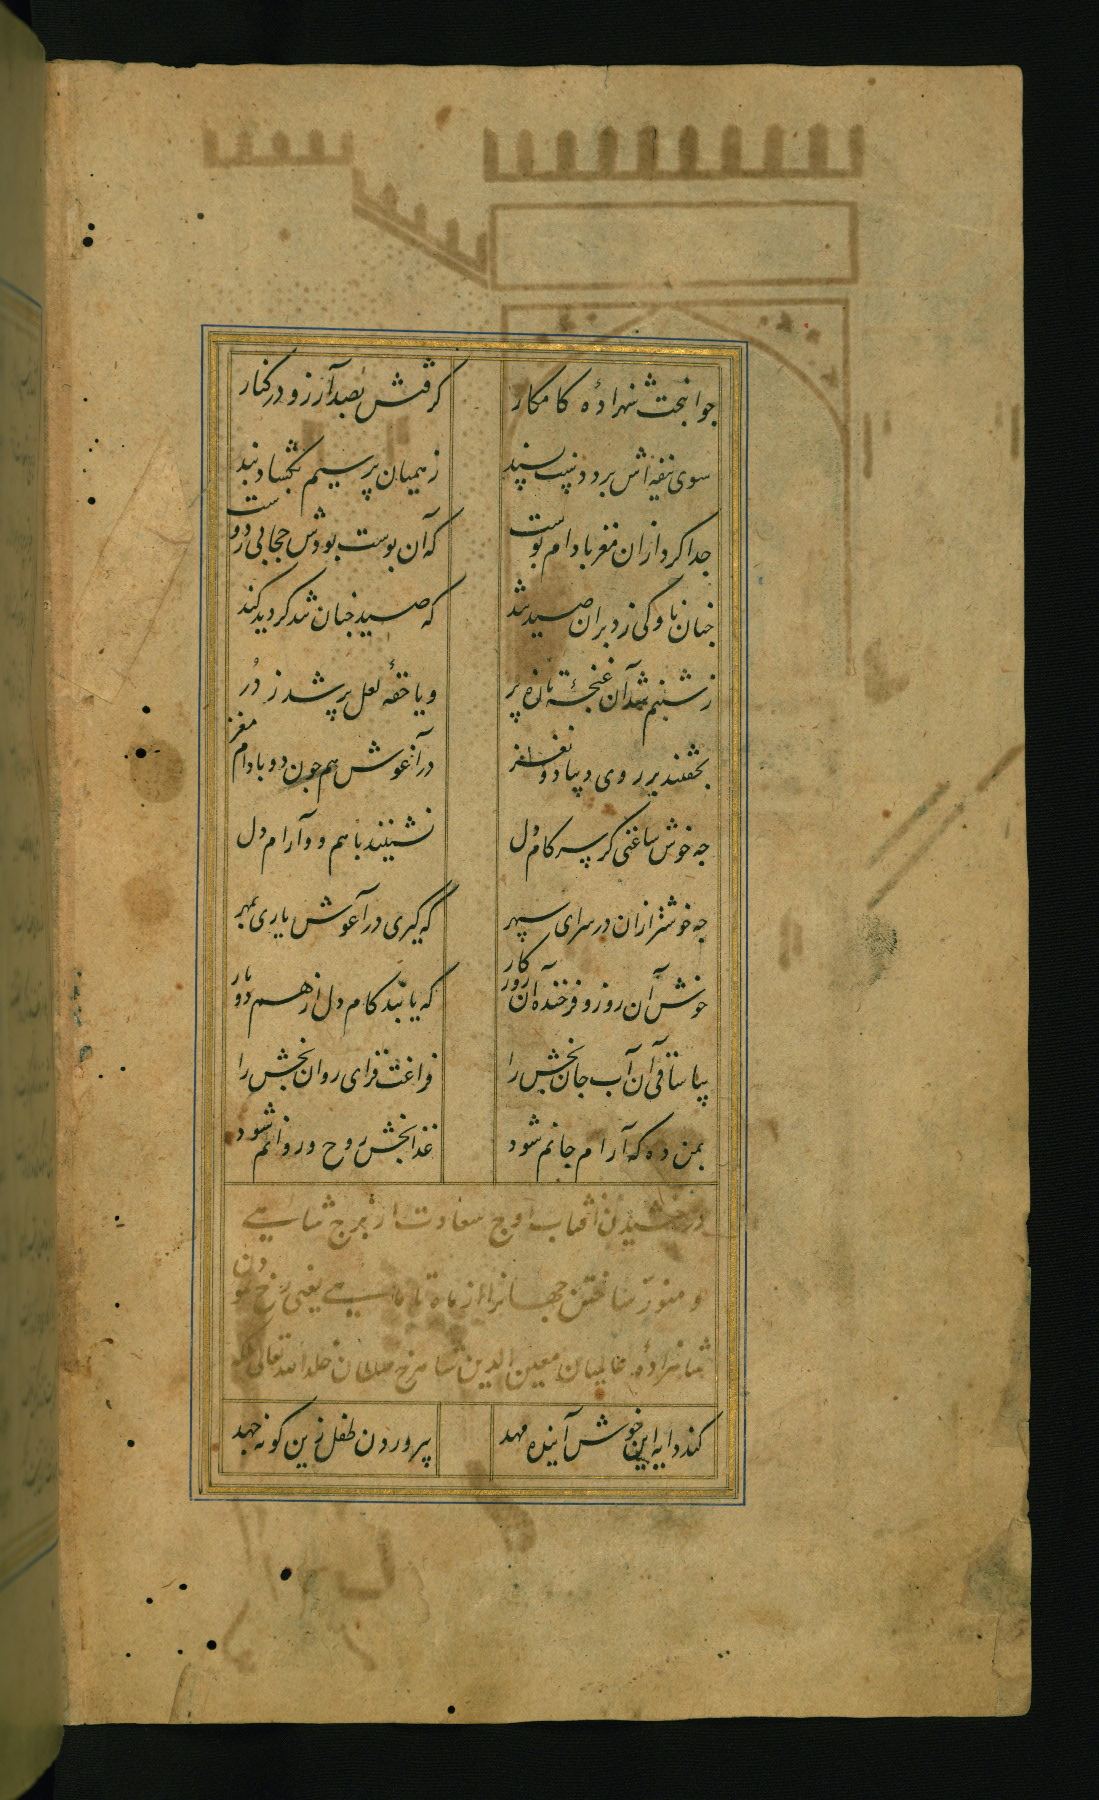 جوانبخت شهزادهٔ کامکار گرفتش بصد آرزو در کنار
سوی نیفه اش برد دست سپند ز همیان پر سیم بگشاد بند
جدا کرد ازان مغز بادام پوست که آن پوست بودش حجابی ز دوست
چنان ناوکی زد بران صید شد که صید چنان شد کردید کند
ز شبنم شد آن غنچهٔ تازه پر و یا حقهٔ لعل پر شد ز دُر
بخفتند بر روی دیبا دو نغز در آغوش هم چون دو بادام مغز
چه خوش ساعتی کز پی کام دل نشینند با هم دو آرام دل
چه خوشتر ازان در سرای سپهر که گیری در آغوش یاری بمهر
خوش آن روز و فرخنده آن روزکار که یابند کام دل از هم دو یار
بیا ساقی آن آب جان بخش را فراغت فزای روان بخش را
بمن ده که آرام جانم شود غذابخش روح و روانم شود
درخشیدن آفتاب اوج سعادت از برج شاهی
و منور ساختن جهان را از ماه تا ماهی یعنی رخ نمودن
شاهزادهٔ عالمیان معین الدین شاهرخ سلطان خلد الله تعالی ملکه
کند دایه این خوش آینده مهد بپروردن طفل زین کونه جهد